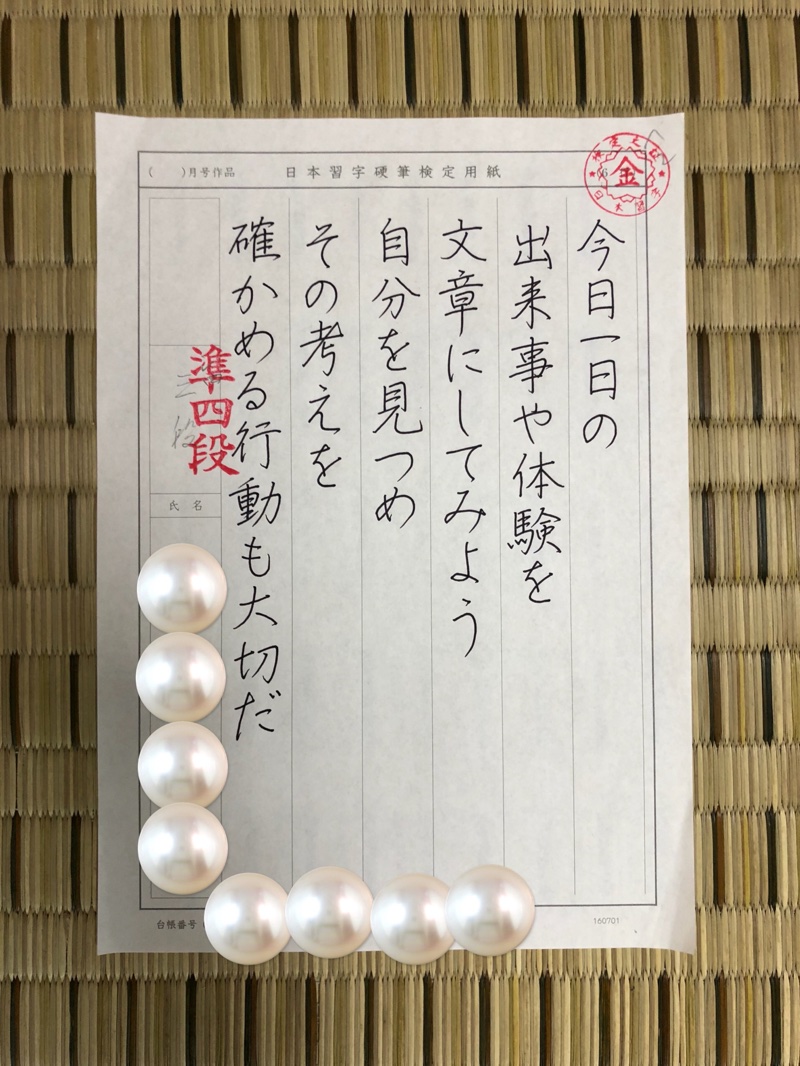 ( )月号作品 日本習字硬筆検定用紙
金
今日一日の
出来事や体験を
文章にしてみよう
自分を見つめ
その考えを
確かめる行動も大切だ
準四段
段
氏名
台帳番号
160701